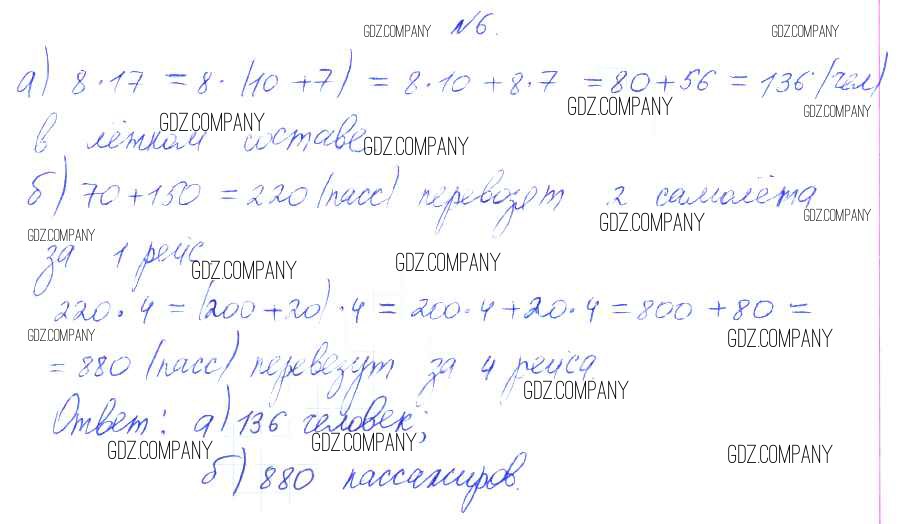 GDZ.COMPANY №6. GDZ.COMPANY
а) 8·17 = 8·(10+7) = 8·10+8·7 = 80+56 = 136 (чел)
GDZ.COMPANY GDZ.COMPANY GDZ.COMPANY
в лётном составе GDZ.COMPANY
б) 70+150 = 220 (пасс) перевозят 2 самолёта
GDZ.COMPANY GDZ.COMPANY GDZ.COMPANY
за 1 рейс GDZ.COMPANY GDZ.COMPANY
220·4 = (200+20)·4 = 200·4+20·4 = 800+80 =
GDZ.COMPANY GDZ.COMPANY
= 880 (пасс) перевезут за 4 рейса
GDZ.COMPANY
Ответ: а) 136 человек;
GDZ.COMPANY GDZ.COMPANY GDZ.COMPANY
б) 880 пассажиров.